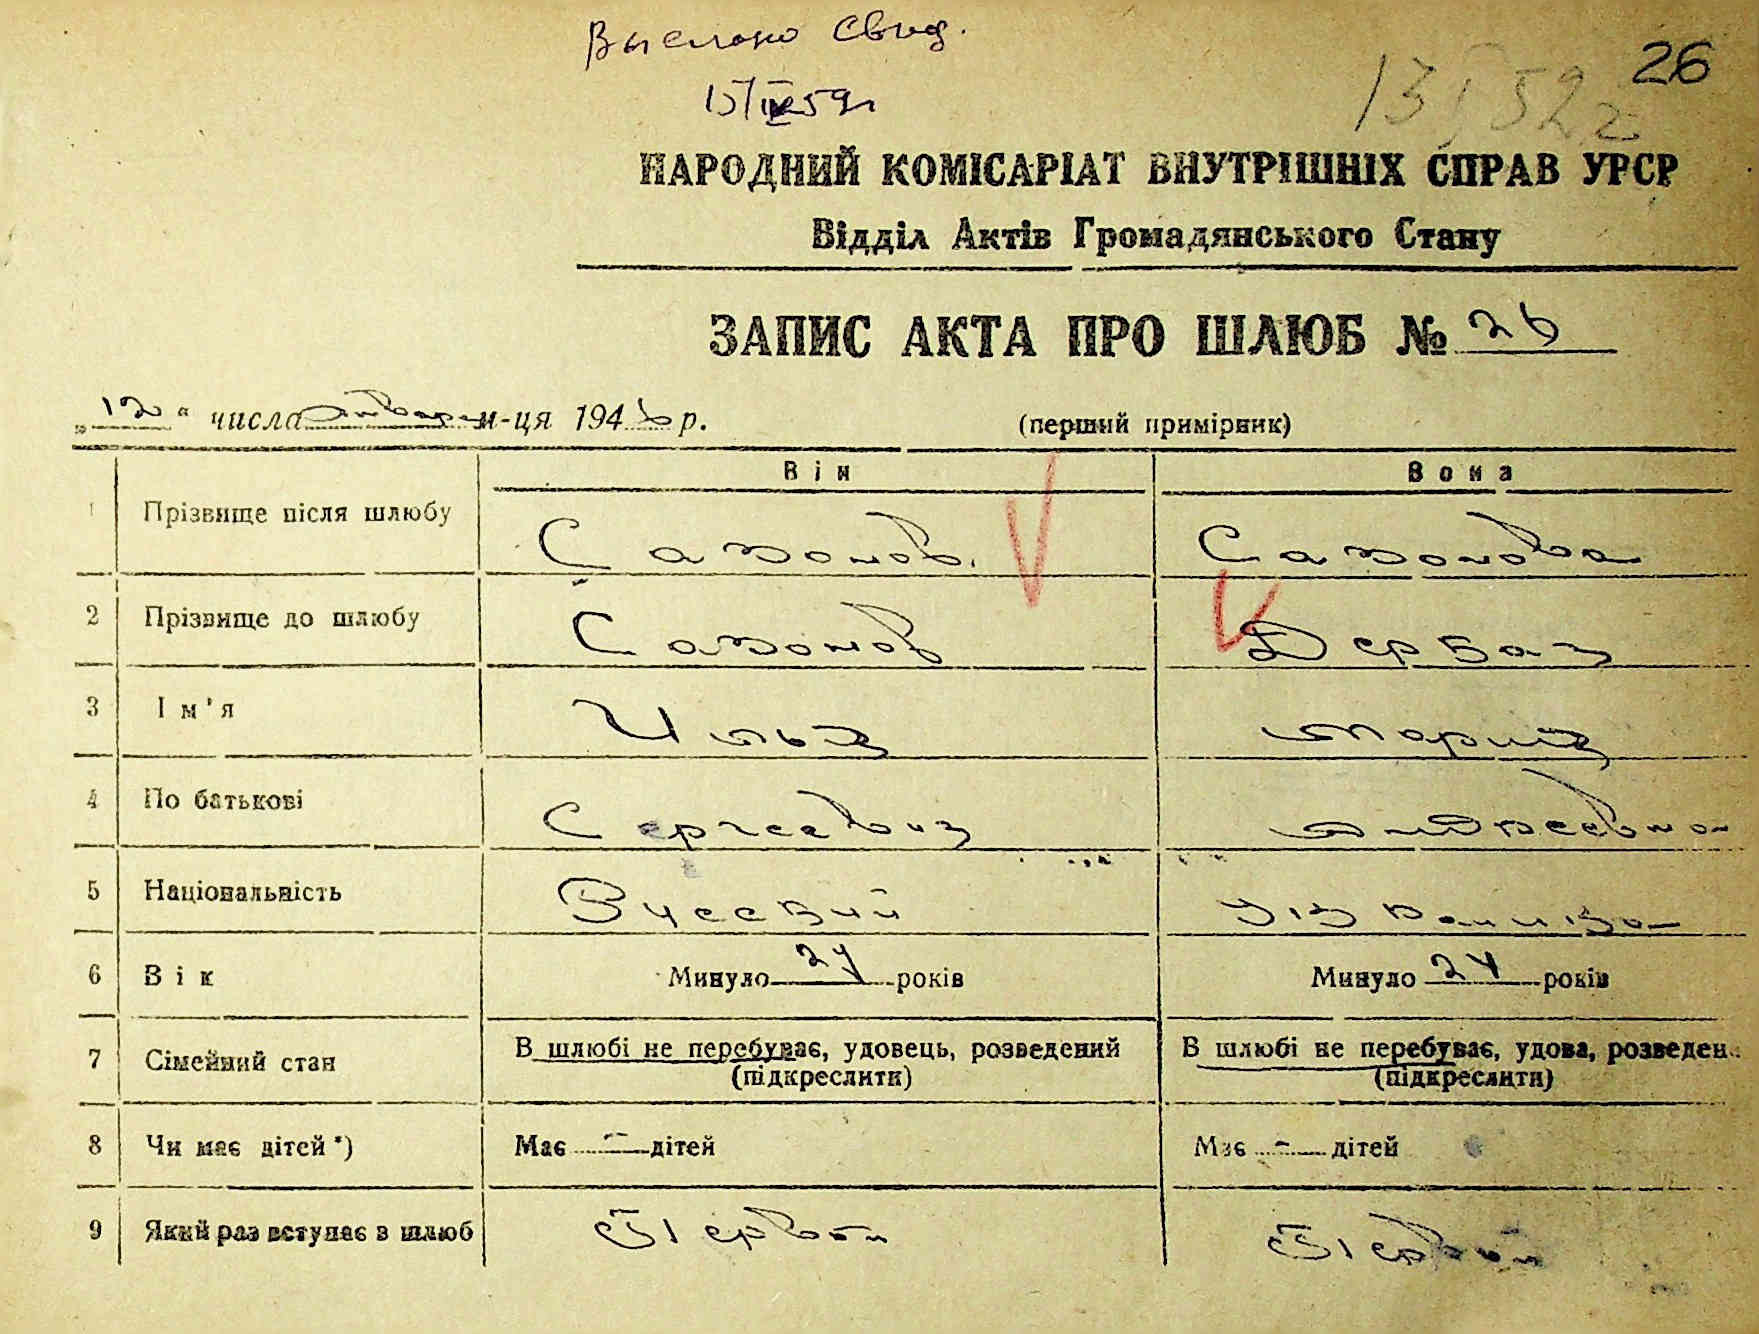 Выслано Свид.
15/IV 59г
26
НАРОДНИЙ КОМІСАРІАТ ВНУТРІШНІХ СПРАВ УРСР
Відділ Актів Громадянського Стану
ЗАПИС АКТА ПРО ШЛЮБ № 26
„12“ числа января м-ця 1946 р. (перший примірник)
Він Вона
1 Прізвище після шлюбу Сазонов. Сазонова
2 Прізвище до шлюбу Сазонов
3 Ім'я Илья Мария
4 По батькові Сергеевич Андреевна
5 Національність Русский Украинка
6 Вік Минуло років Минуло 24 років
7 Сімейний стан В шлюбі не перебуває, удовець, розведений В шлюбі не перебуває, удова, розведен
(підкреслити) (підкреслити)
8 Чи має дітей*) Має - дітей Має - дітей
9 Який раз вступає в шлюб Первый Первый